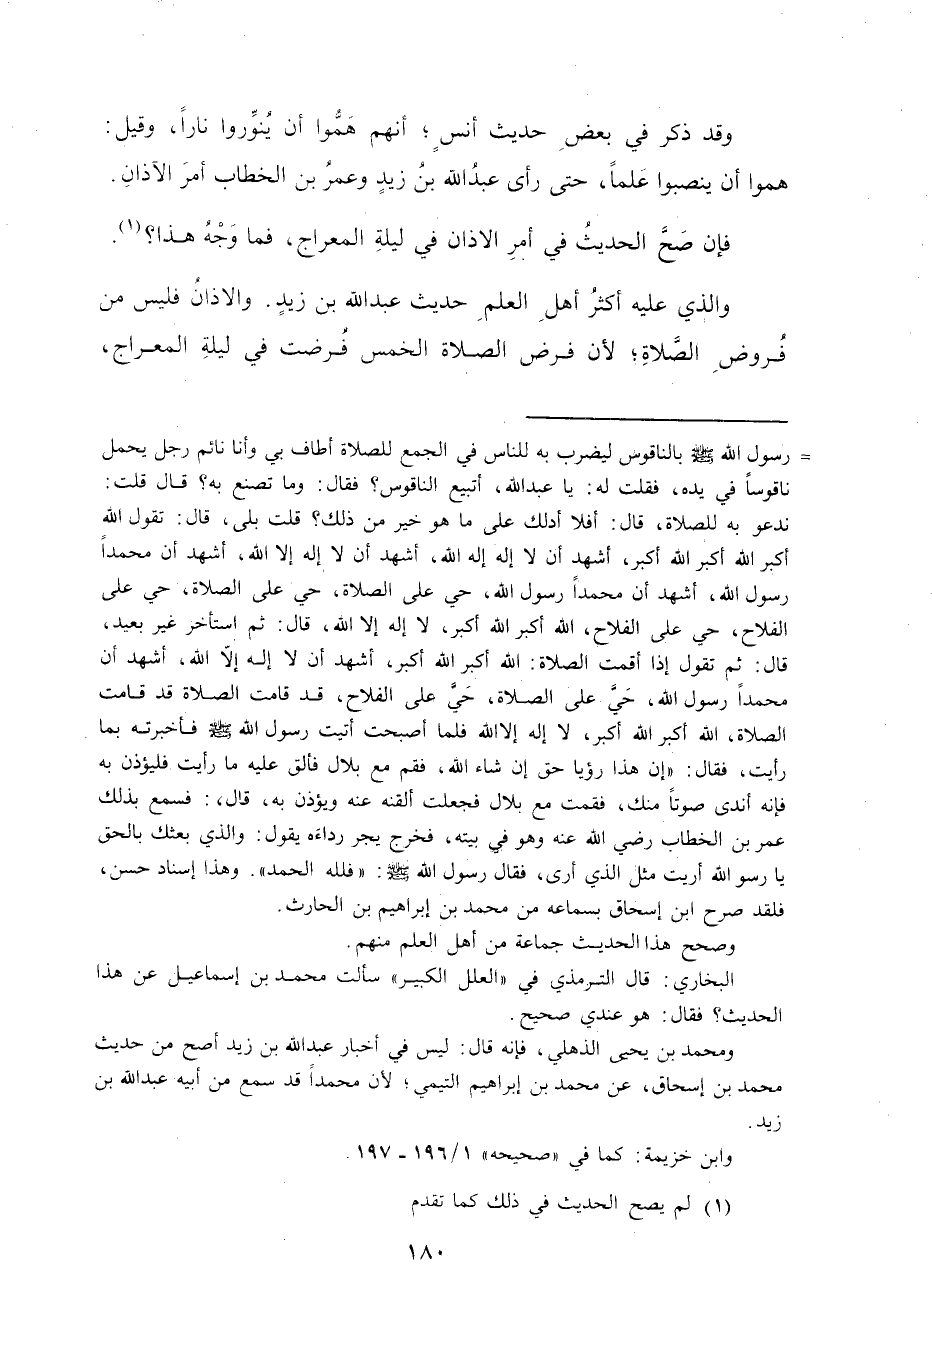 وقد ذكر في بعضِ حديث أنسٍ؛ أنهم هَمُّوا أن يُنوِّروا ناراً، وقيل:
هموا أن ينصبوا عَلماً، حتى رأى عبدُالله بنُ زيدٍ وعمرُ بن الخطاب أمرَ الآذانِ.
فإن صَحَّ الحديثُ في أمرِ الاذان في ليلةِ المعراج، فما وَجْهُ هـذا؟(١).
والذي عليه أكثرُ أهلِ العلمِ حديث عبدالله بن زيدٍ. والاذانُ فليس من
فُـروضِ الصَّلاةِ؛ لأن فـرض الصـلاة الخمس فُـرضت في ليلةِ المعـراج،
= رسول الله ﷺ بالناقوس ليضرب به للناس في الجمع للصلاة أطاف بي وأنا نائم رجل يحمل
ناقوساً في يده، فقلت له: يا عبدالله، أتبيع الناقوس؟ فقال: وما تصنع به؟ قـال قلت:
ندعو به للصلاة، قال: أفلا أدلك على ما هو خير من ذلك؟ قلت بلى، قال: تقول الله
أكبر الله أكبر الله أكبر، أشهد أن لا إله إله الله، أشهد أن لا إله إلا الله، أشهد أن محمداً
رسول الله، أشهد أن محمداً رسول الله، حي على الصلاة، حي على الصلاة، حي على
الفلاح، حي على الفلاح، الله أكبر الله أكبر، لا إله إلا الله، قال: ثم استأخر غير بعيد،
قال: ثم تقول إذا أقمت الصلاة: الله أكبر الله أكبر، أشهد أن لا إلـه إلّا الله، أشهد أن
محمداً رسول الله، حَيَّ على الصـلاة، حَيَّ على الفلاح، قـد قامت الصـلاة قد قـامت
الصلاة، الله أكبر الله أكبر، لا إله إلاالله فلما أصبحت أتيت رسول الله ﷺ فـأخبرتـه بما
رأيت، فقال: «إن هذا رؤيا حق إن شاء الله، فقم مع بلال فألق عليه ما رأيت فليؤذن به
فإنه أندى صوتاً منك، فقمت مع بلال فجعلت ألقنه عنه ويؤذن به، قال،: فسمع بذلك
عمر بن الخطاب رضي الله عنه وهو في بيته، فخرج يجر رداءه يقول: والذي بعثك بالحق
يا رسو الله أريت مثل الذي أرى، فقال رسول الله ﷺ: «فلله الحمد». وهذا إسناد حسن،
فلقد صرح ابن إسحاق بسماعه من محمد بن إبراهيم بن الحارث.
وصحح هذا الحديث جماعة من أهل العلم منهم.
البخاري: قال التـرمذي في «العلل الكبيـر» سألت محمـد بن إسماعيـل عن هذا
الحديث؟ فقال: هو عندي صحيح.
ومحمد بن يحيى الذهلي، فإنه قال: ليس في أخبار عبدالله بن زيد أصح من حديث
محمد بن إسحاق، عن محمد بن إبراهيم التيمي؛ لأن محمداً قد سمع من أبيه عبدالله بن
زيد.
وابن خزيمة: كما في «صحيحه» ١/ ١٩٦ - ١٩٧.
(١) لم يصح الحديث في ذلك كما تقدم
١٨٠